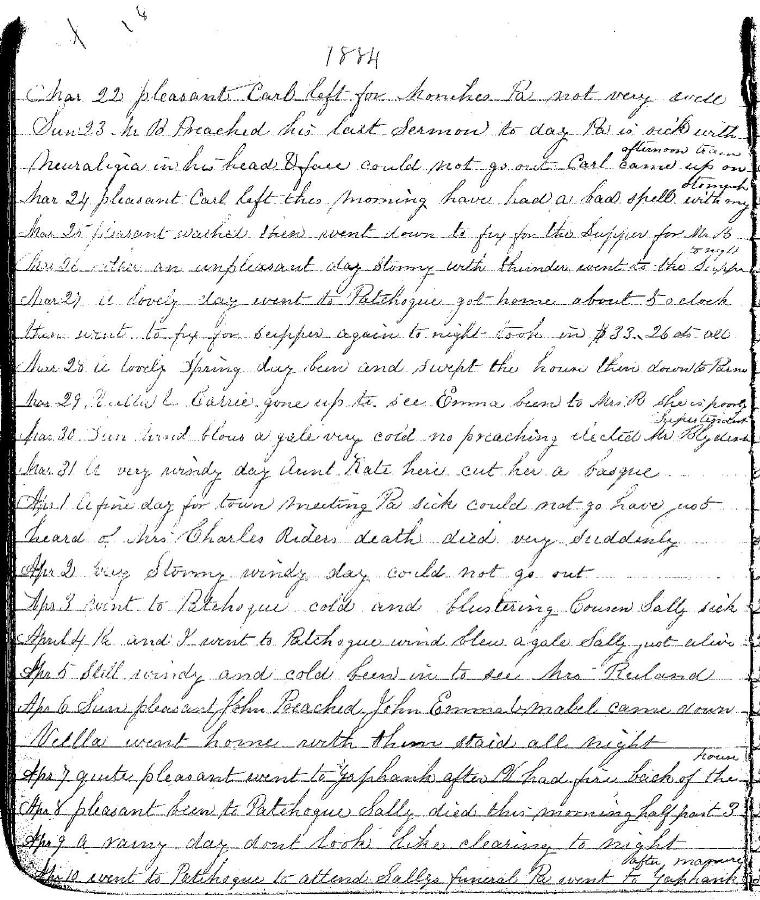 1884
Mar 22 pleasant Carl left for Moriches Pa not very well
Sun 23 Mr B Preached his last Sermon to day Pa is sick with
afternoon train
Neuraligia in his head & face could not go out Carl came up on
Mar 24 pleasant Carl left this morning have had a bad spell with my
stomach
Mar 25 pleasant washed then went down to fix for the Supper for Mr B
to night
Mar 26 rather an unpleasant day Stormy with thunder went to the Supper
Mar 27 a lovely day went to Patchogue got home about 5 oclock
then went to fix for supper again to night took in $33.26 cts all
Mar 28 a lovely Spring day been and swept the house then down to
Mar 29 & Carrie gone up to see Emma been to Mrs B she is poorly
Mar 30 Sun wind blows a gale very cold no preaching elected Mr
Mar 31 A very windy day Aunt Kate here cut her a basque
Apr 1 A fine day for town meeting Pa sick could not go have just
heard of Mrs Charles Riders death died very suddenly
Apr 2 Very Stormy windy day could not go out
Apr 3 went to Patchogue cold and blustering Cousen Sally sick
April 4 and I went to Patchogue wind blew a gale Sally just alive
Apr 5 Still windy and cold been in to see Mrs Ruland
Apr 6 Sun pleasant John Preached John Emma & Mabel came down
Vellla went home with them staid all night
house
Apr 7 quite pleasant went to Yaphank after had fire back of the
Apr 8 pleasant been to Patchogue Sally died this morning half past 3
Apr 9 a rainy day dont look like clearing to night
after manure
Apr 10 went to Patchogue to attend Sallys funeral Pa went to Yaphank